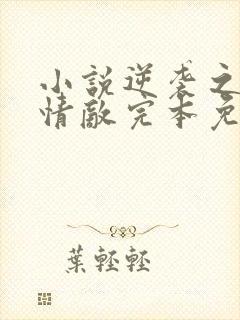 小説逆袭之
情敵完本免
葉輕輕